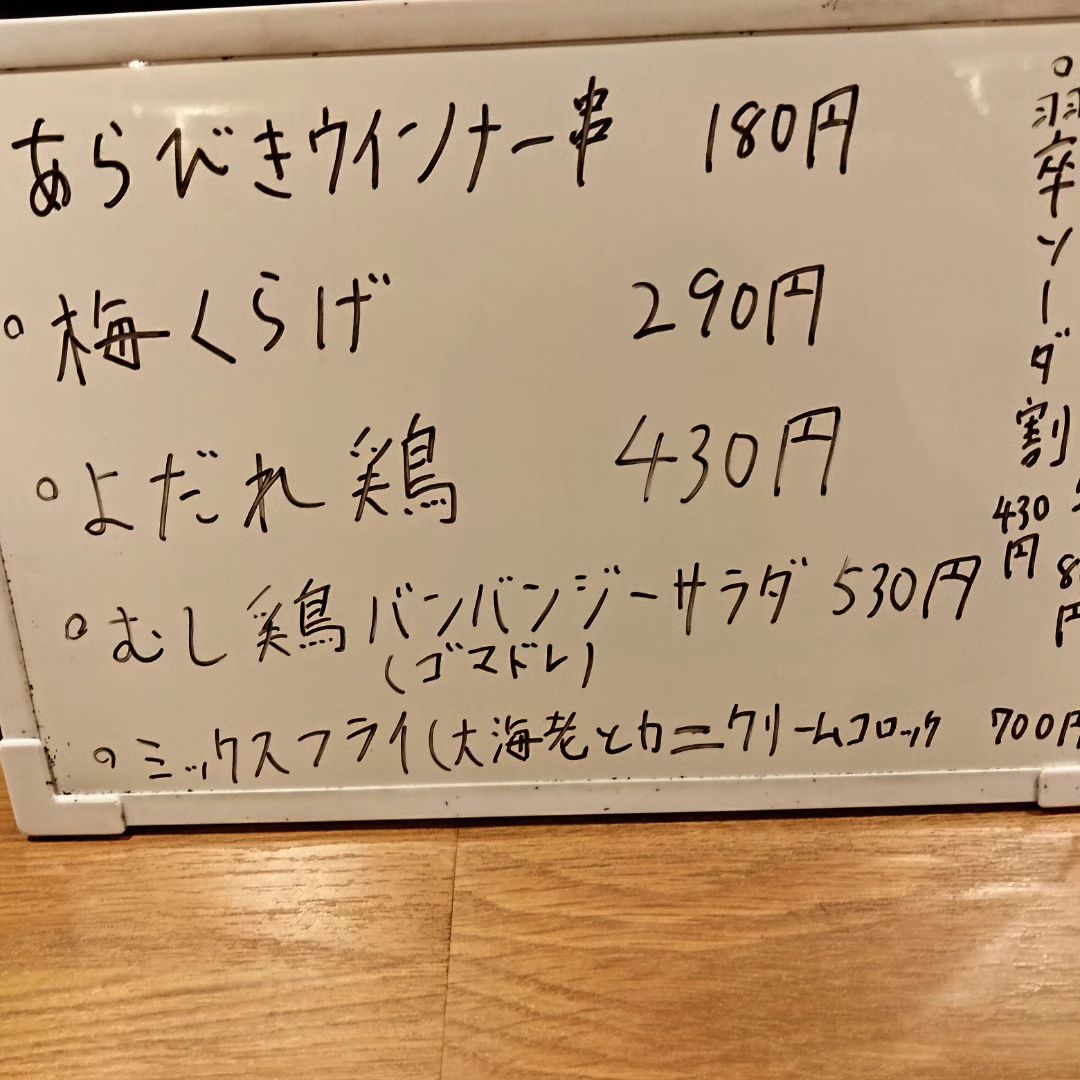 あらびきウインナー串 180円
○梅くらげ 290円
○よだれ鶏 430円
○むし鶏バンバンジーサラダ 530円
(ゴマドレ)
○ミックスフライ(大海老とカニクリームコロック 700円
○翠ソーダ割
430
円